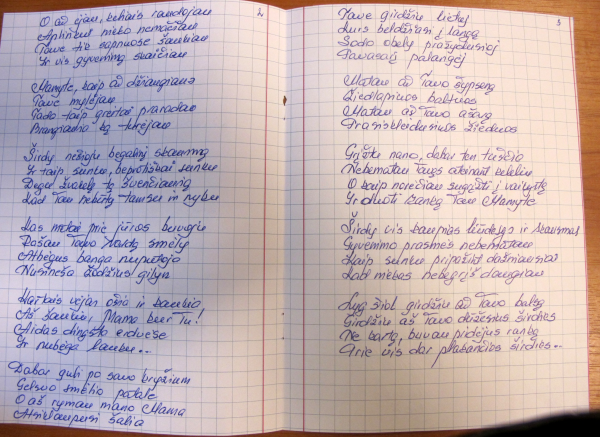 2
O aš ėjau, keliais
Aplinkui nieko nemačiau
Tave tik sapnuose šaukiau
Ir vis gyvenimą skaičiau
Mamyte, kaip aš džiaugiaus
Tave mylėjau
Kado taip greitai praradau
Brangiausio ką turėjau
Širdy nešioju begalinį skausmą
Ir taip sunku, nepaprastai sunku
Degu žvakelę tą švenčiausią
Kad Tau nebūtų tamsu ir nyku
Kas metai prie jūros buvoju
Rašau Tavo vardą smėly
Atbėgus banga nuplukdo
Nusineša žodžius gilyn
Kartais vėjas ošia ir
Aš šaukiu, Mama kur Tu!
Aidas dingsta erdvėse
Ir nubėga lauku...
Dabar guli po savo
Gelsvo smėlio patale
O aš rymau mano Mama
Atsiklaupusi šalia
3
Tave girdžiu lietuj
Kuris beldžiasi į langą
Sodo obelų pražydusioj
Pavasarį palangėj
Matau aš Tavo šypseną
Žiedlapiuos baltuos
Matau aš Tavo ašarą
Prasiskleidusiuos žieduos
Grįžtu namo, dabar ten tuščia
Nebematau Tavęs ateinant keleliu
O kaip norėčiau sugrįžti į vaikystę
Ir ištiesti ranką Tau Mamyte
Širdy vis kaupias liūdesys ir skausmas
Gyvenimo prasmės nebematau
Kaip sunku pripažint dažniausiai
Kad niekas nebegrįš daugiau
Lyg šiol girdžiu aš Tavo balsą
Girdžiu aš Tavo širdies
Ne kartą, buvau pridėjus ranką
Prie vis dar plakančios širdies...